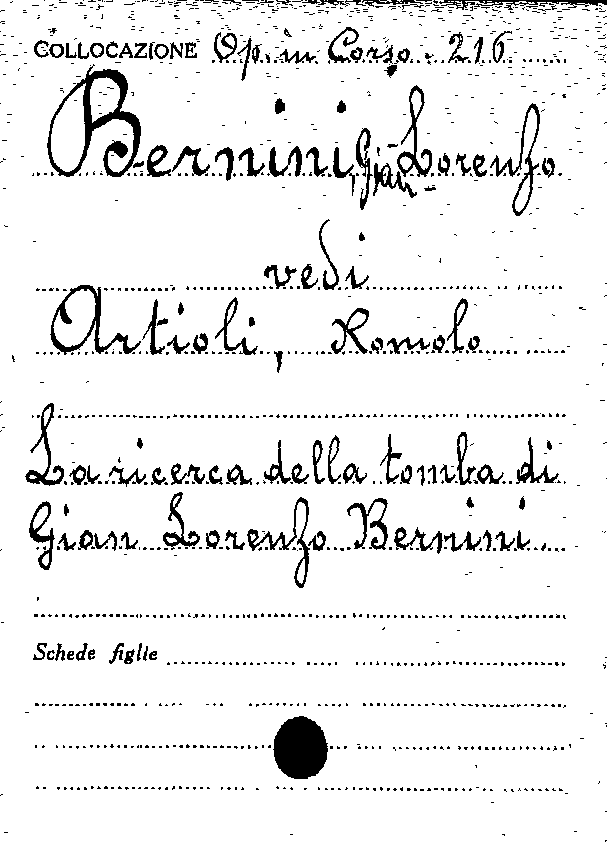 COLLOCAZIONE Op. in Corso. 216
Bernini, Gian-Lorenzo
vedi
Artioli, Romolo
La ricerca della tomba di
Gian Lorenzo Bernini.
Schede figlie